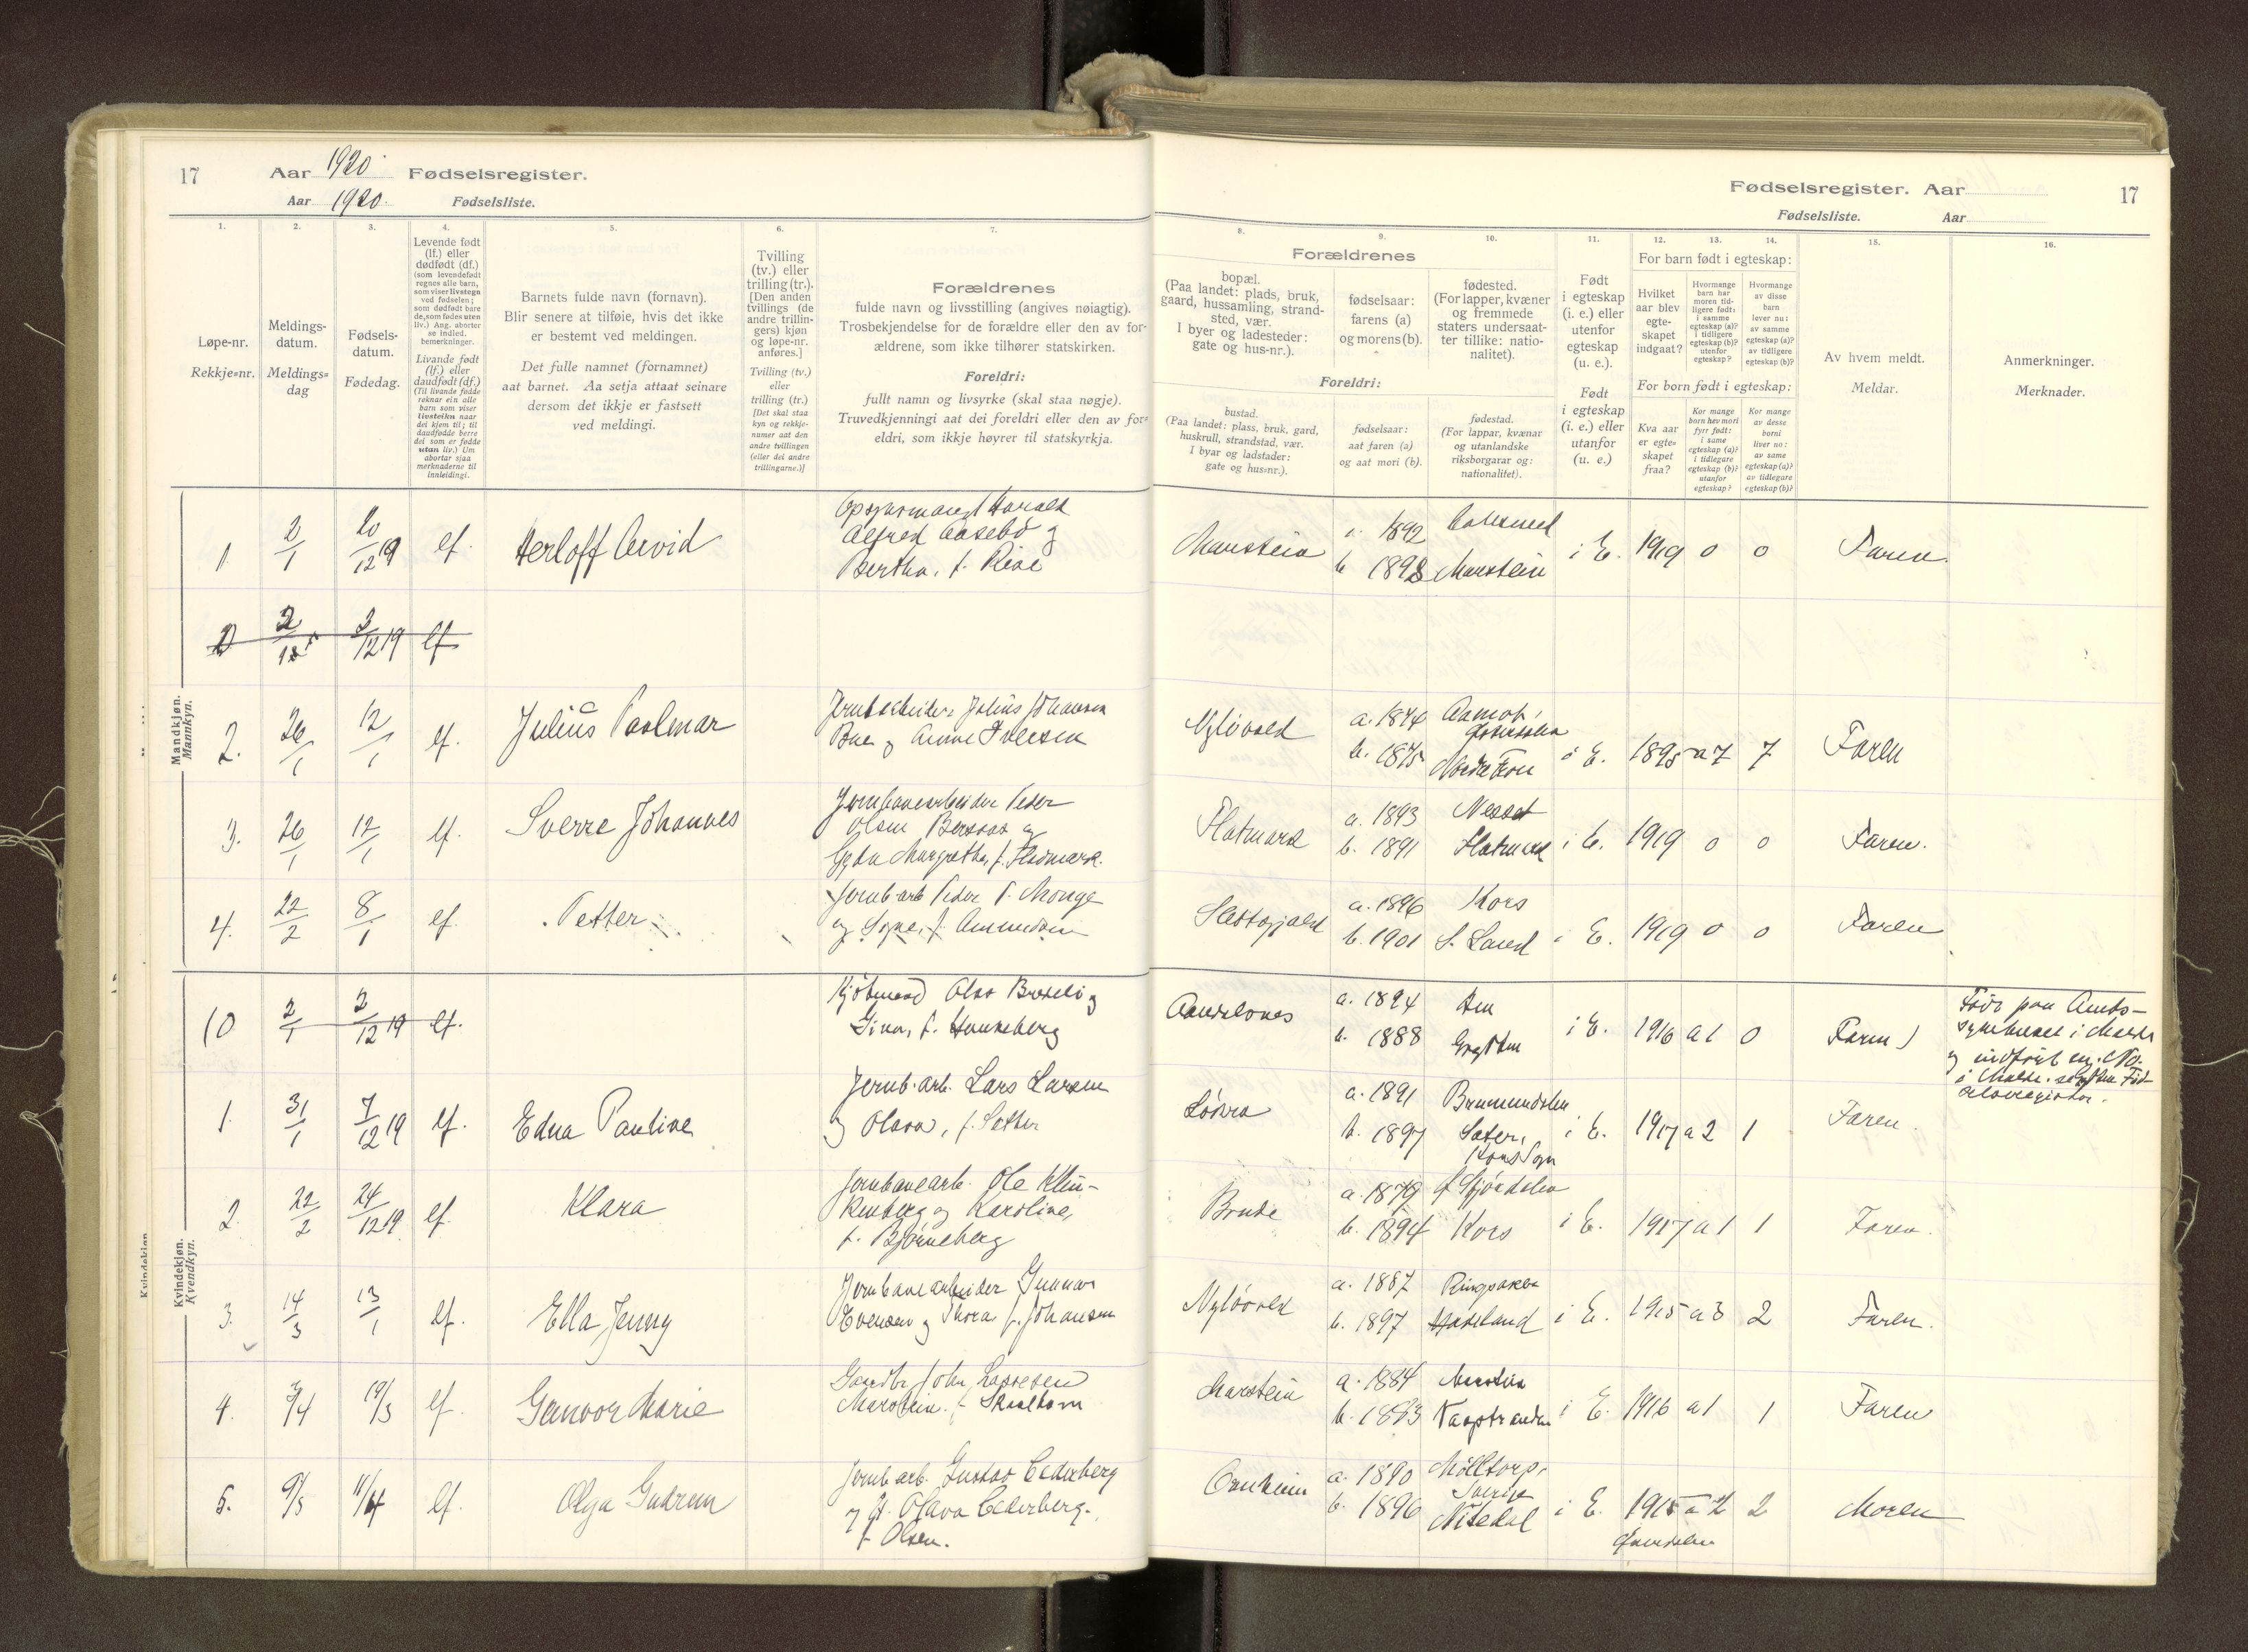 17 Aar 1920 Fødselsregister.
Aar 1920. Fødselsliste.
1. 2. 3. 4. 5. 6. 7.
Løpe-nr.
Rekkje-nr.
Meldings-
datum.
Meldings-
dag
Fødsels-
datum.
Fødedag.
Levende født
(lf.) eller
dødfødt (df.)
(som levendefødt
regnes alle barn,
som viser livstegn
ved fødselen;
som dødfødt bare
de, som fødes uten
liv.) Ang. aborter
se indled.
bemerkninger.
Livande født
(lf.) eller
daudfødt (df.)
(Til livande fødde
reknar ein alle
barn som viser
livsteikn naar
dei kjem til; til
daudfødde berre
dei som er fødde
utan liv.) Um
abortar sjaa
merknaderne til
innleidingi.
Barnets fulde navn (fornavn).
Blir senere at tilføie, hvis det ikke
er bestemt ved meldingen.
Det fulle namnet (fornamnet)
aat barnet. Aa setja attaat seinare
dersom det ikkje er fastsett
ved meldingi.
Tvilling
(tv.) eller
trilling (tr.).
[Den anden
tvillings (de
andre trillin-
gers) kjøn
og løpe-nr.
anføres.]
Tvilling (tv.)
eller
trilling (tr.)
[Det skal staa
kyn og rekkje-
numer aat den
andre tvillingen
(eller dei andre
trillingarne.)]
Forældrenes
fulde navn og livsstilling (angives nøiagtig).
Trosbekjendelse for de forældre eller den av for-
ældrene, som ikke tilhører statskirken.
Foreldri:
fullt namn og livsyrke (skal staa nøgje).
Truvedkjenningi aat dei foreldri eller den av for-
eldri, som ikkje høyrer til statskyrkja.
Mandkjøn.
Mannkyn.
1. 2/1 20/12 19 lf. Herloff Arvid
Harald
Alfred Aasebö og
Bertha, f.
2 3/12 19 lf
2. 26/1 12/1 lf. Julius
Julius Johansen
og Anne Iversen
3. 26/1 12/1 lf. Sverre Johannes
Jernbanearbeider Peder
Olsen og
Gyda Margrethe, f.
4. 22/2 8/1 lf. Petter
Jernb. arb. Peder P. Monge
og Signe, f. Amundsen
Kvindekjøn.
Kvendkyn.
(0 2/1 2/12 19 lf.
Olav og
f.
1. 31/1 7/12 19 lf. Edna Pauline
Jernb. arb. Lars Larsen
og Olava, f. Sætter
2. 22/2 24/12 19 lf. Klara
Jernbanearb. Ole Klin-
kenberg og Karoline,
f. Bjørneberg
3. 14/3 13/1 lf. Ella Jenny
Jernbanearbeider Gunnar
Evensen og Thora f. Johansen
4. 3/4 19/3 lf. Gunvor Marie
Gaardbr. John
Marstein. f.
5. 9/5 11/4 lf. Olga Gudrun
Jernb. arb. Gustav Cederberg
og H. Olava Cederberg.
f. Olsen.
Fødselsregister. Aar 17
Fødselsliste. Aar
8. 9. 10. 11. 12. 13. 14. 15. 16.
Forældrenes
bopæl.
(Paa landet: plads, bruk,
gaard, hussamling, strand-
sted, vær.
I byer og ladesteder:
gate og hus-nr.).
fødselsaar:
farens (a)
og morens (b).
fødested.
(For lapper, kvæner
og fremmede
staters undersaat-
ter tillike: natio-
nalitet).
Foreldri:
bustad.
(Paa landet: plass, bruk, gard,
huskrull, strandstad, vær.
I byar og ladstader:
gate og hus-nr.).
fødselsaar:
aat faren (a)
og aat mori (b).
fødestad.
(For lappar, kvænar
og utanlandske
riksborgarar og:
nationalitet).
Født
i egteskap
(i. e.) eller
utenfor
egteskap
(u. e.).
Født
i egteskap
(i. e.) eller
utanfor
(u. e.)
For barn født i egteskap:
Hvilket
aar blev
egte-
skapet
indgaat?
Hvormange
barn har
moren tid-
ligere født:
i samme
egteskap (a)?
i tidligere
egteskap (b)?
utenfor
egteskap?
Hvormange
av disse
barn
lever nu:
av samme
egteskap (a)?
av tidligere
egteskap (b)?
For born født i egteskap:
Kva aar
er egte-
skapet
fraa?
Kor mange
born hev mori
fyrr født:
i same
egteskap (a)?
i tidlegare
egteskap (b)?
utanfor
egteskap?
Kor mange
av desse
borni
liver no:
av same
egteskap (a)?
av tidlegare
egteskap (b)?
Av hvem meldt.
Meldar.
Anmerkninger.
Merknader.
Marstein a. 1892 b. 1898 Marstein i E. 1919 0 0 Faren.
a. 1874 b. 1875 i E. 1895 a 7 7 Faren
Flatmark a. 1893 Nesset
b. 1891 Flatmark i E. 1919 0 0 Faren.
a. 1896 Kors
b. 1901 i E. 1919 0 0 Faren
a. 1894
b. 1888 i E. 1916 a 1 0 Faren)
Född paa Amts-
sykehuset i Molde
og indfört
i Molde
a. 1891 Brumunddalen
b. 1897 i E. 1917 a 2 1 Faren.
Brude a. 1879
b. 1894 Kors i E. 1917 a 1 1 Faren.
a. 1887 Ringsaker
b. 1897 i E. 1915 a 3 2 Faren.
Marstein a. 1884 Marstein
b. 1883 i E. 1916 a 1 1 Faren
Ornheim a. 1890 Mölltorp,
Sverige
b. 1896 Nitedal i E. 1915 a 2 2 Moren